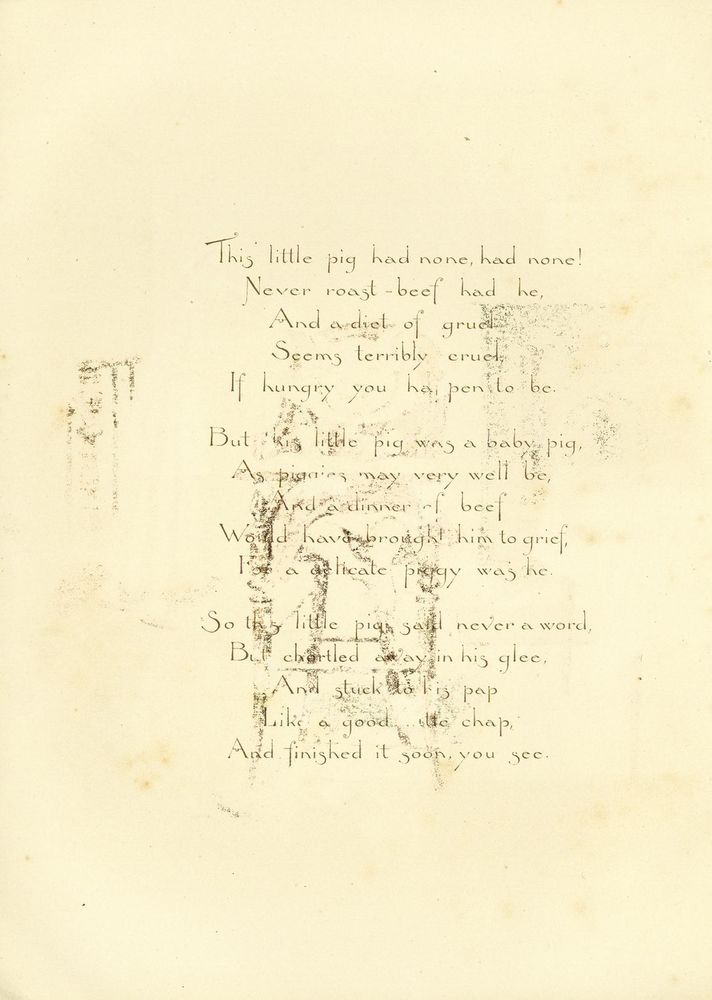 This little pig had none, had none!
Never roast-beef had he,
And a diet of gruel
Seems terribly cruel,
If hungry you happen to be.
But this little pig was a baby pig,
As piggies may very well be,
And a dinner of beef
Would have brought him to grief,
For a delicate piggy was he.
So this little pig said never a word,
But chortled away in his glee,
And stuck to his pap
Like a good little chap,
And finished it soon, you see.